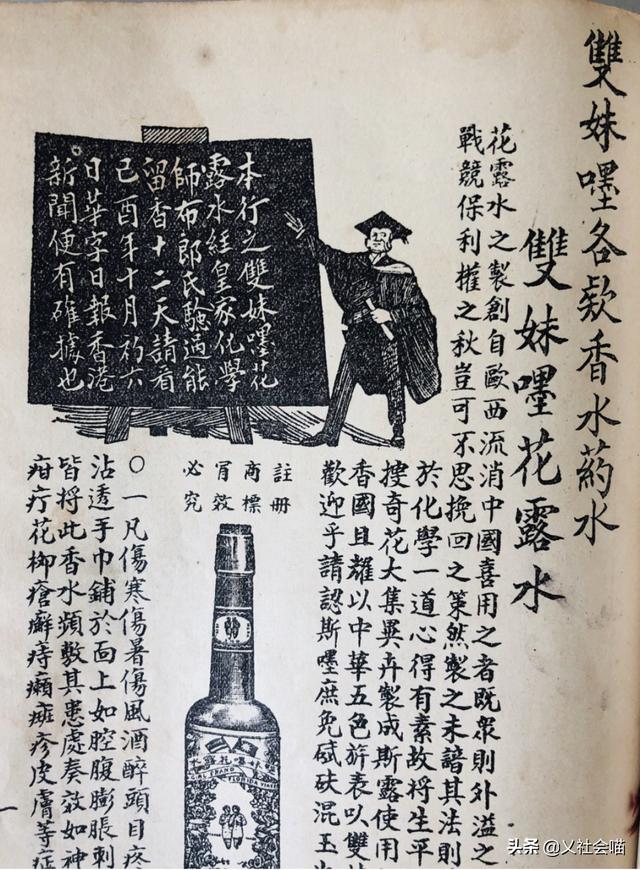 雙妹嚜各欵香水葯水
雙妹嚜花露水
花露水之製創自歐西流消中國喜用之者既衆則外溢之
戰競保利權之秋豈可不思挽回之策然製之未諳其法則
於化學一道心得有素故將生平
搜奇花大集異卉製成斯露使用
香國且耀以中華五色旂表以雙
歡迎乎請認斯嚜庶免碔砆混玉
本行之雙妹嚜花
露水經皇家化學
師布郎氏驗過能
留香十二天請看
己酉年十月初六
日華字日報香港
新聞便有確據也
註冊
商標
冐效
必究
FLORIDA WATER
〇一凡傷寒傷暑傷風酒醉頭目疼
沾透手巾鋪於面上如腔腹膨脹刺
皆將此香水頻敷其患處奏效如神
疳疔花柳瘡癬痔癩癍疹皮膚等症
头条 @乂社会喵